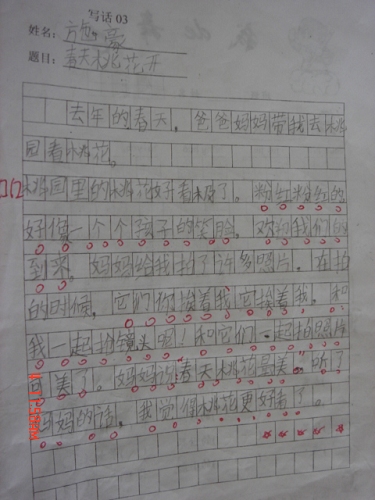 写话03
姓名：方
题目：春天桃花开
去年的春天，爸爸妈妈带我去桃
园看桃花。
桃园里的桃花好看极了。粉红粉红的
好像一个个孩子的笑脸。欢迎我们的
到来。妈妈给我拍了许多照片。在拍
的时候，它们你挨着我它挨着我。和
我一起抢镜头呢！和它们一起拍照
可美了。妈妈说春天桃花最美”听了
妈妈的话，我觉得桃花更好看了。